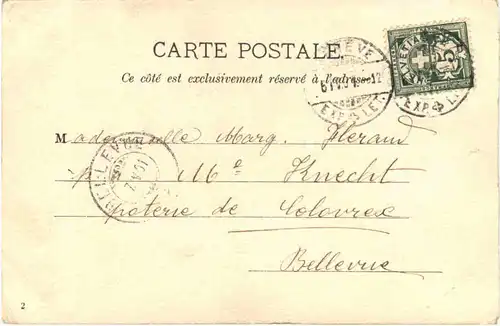 CARTE POSTALE.
Ce côté est exclusivement réservé à l'adresse.
GENÈVE
6 IV.01. - 12
EXP. LET.
HELVETIA
5
EXP. LET.
BELLEVUE
7.IV.01
Mademoiselle Marg.
p. Me Knecht
poterie de Colovrex
Bellevue
2